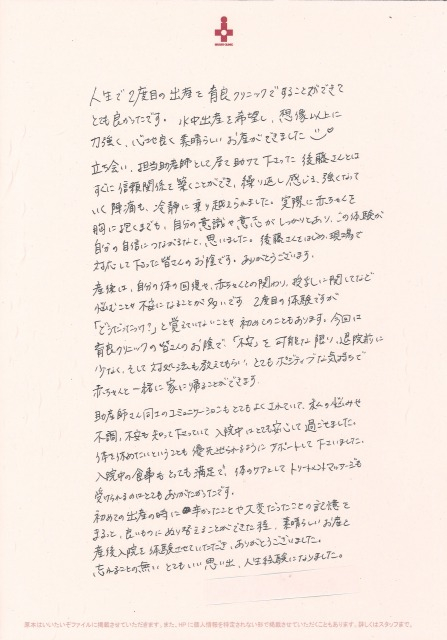 人生で2度目の出産を育良クリニックですることができて
とても良かったです。水中出産を希望し、想像以上に
力強く、心地良く素晴らしいお産ができました
立ち会い、担当助産師として居て助けて下さった後藤さんとは
すぐに信頼関係を築くことができ、繰り返し感じる、強くなって
いく陣痛も、冷静に乗り越えられました。実際に赤ちゃんを
胸に抱くまでも、自分の意識や意志がしっかりとあり、この体験が
自分の自信につながるなと、思いました。後藤さんをはじめ、現場で
対応して下さった皆さんのお陰です。ありがとうございます。
産後は、自分の体の回復や、赤ちゃんとの関わり、授乳に関してなど
悩むことや不安になることが多いです 2度目の体験ですが
「どうだったっけ？」と覚えていないことや初めてのこともあります。今回は
育良クリニックの皆さんのお陰で、「不安」を可能な限り、退院前に
少なく、そして対処法も教えてもらい、とてもポジティブな気持ちで
赤ちゃんと一緒に家に帰ることができます。
助産師さん同士のコミュニケーションもとてもよくされていて、私の悩みや
不調、不安も知って下さっていて入院中はとても安心して過ごせました。
体を休めたいということも優先出られるようにサポートして下さいました。
入院中の食事もとても満足で、体のケアとしてトリートメントマッサージも
受けられるのはとてもありがたかったです。
初めての出産の時に辛かったことや大変だったことの記憶を
まるっと、良いものにぬり替えることができた程、素晴らしいお産と
産後入院を体験させていただき、ありがとうございました。
忘れることの無いとてもいい思い出、人生経験になりました。
原本はいいたいぞファイルに掲載させていただきます。また、HPに個人情報を特定されない形で掲載させていただくこともあります。詳しくはスタッフまで。